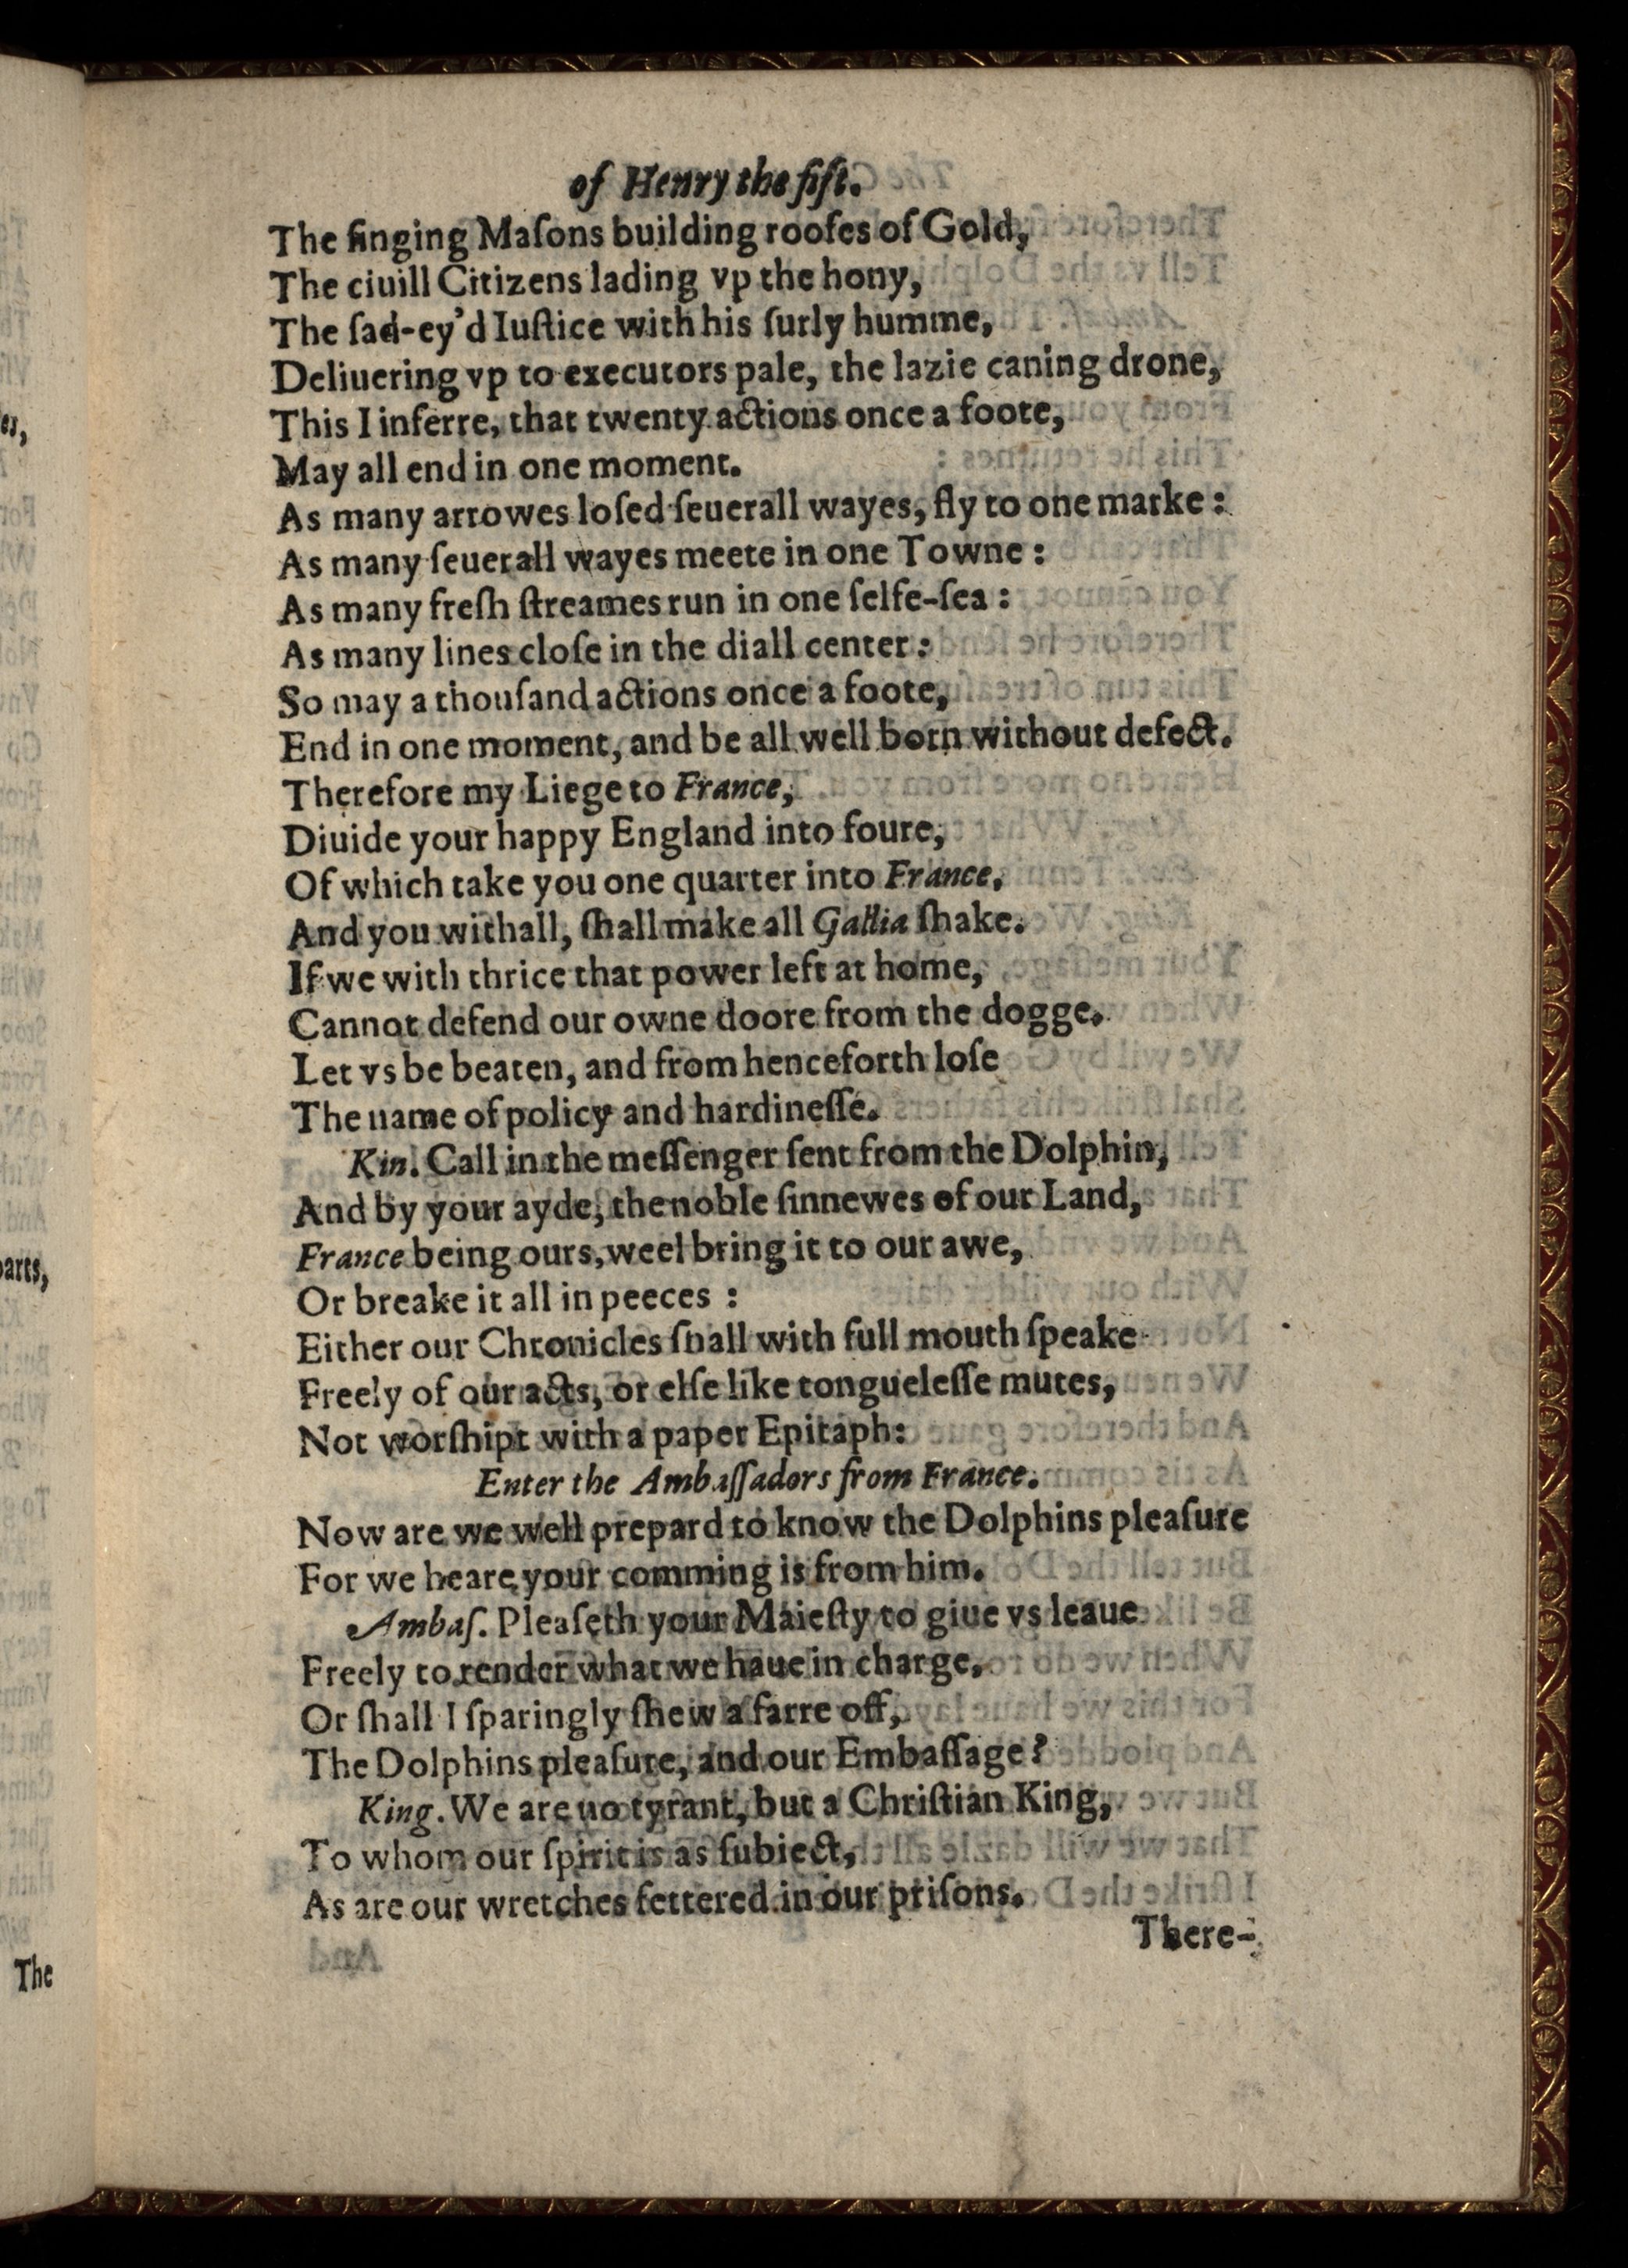 of Henry the fift.
The ſinging Maſons building roofes of Gold,
The ciuill Citizens lading vp the hony,
The ſad-ey'd Iuſtice with his ſurly humme,
Deliuering vp to executors pale, the lazie caning drone,
This I inferre, that twenty actions once a foote,
May all end in one moment.
As many arrowes loſed ſeuerall wayes, fly to one marke:
As many ſeuerall wayes meete in one Towne:
As many freſh ſtreames run in one ſelfe-ſea:
As many lines cloſe in the diall center:
So may a thouſand actions once a foote,
End in one moment, and be all well born without defect.
Therefore my Liege to France,
Diuide your happy England into foure,
Of which take you one quarter into France,
And you withall, ſhall make all Gallia ſhake.
If we with thrice that power left at home,
Cannot defend our owne doore from the dogge.
Let vs be beaten, and from henceforth loſe
The name of policy and hardineſſe.
Kin. Call in the meſſenger ſent from the Dolphin,
And by your ayde, the noble ſinnewes of our Land,
France being ours, weel bring it to our awe,
Or breake it all in peeces:
Either our Chronicles ſhall with full mouth ſpeake
Freely of our acts, or elſe like tongueleſſe mutes,
Not worſhipt with a paper Epitaph:
Enter the Ambaſſadors from France.
Now are we well prepard to know the Dolphins pleaſure
For we heare, your comming is from him.
Ambaſ. Pleaſeth your Maieſty to giue vs leaue
Freely to render what we haue in charge,
Or ſhall I ſparingly ſhew a farre off,
The Dolphins pleaſure, and our Embaſſage?
King. We are no tyrant, but a Chriſtian King,
To whom our ſpirit is as ſubiect,
As are our wretches fettered in our priſons.
There-
es,
parts,
The